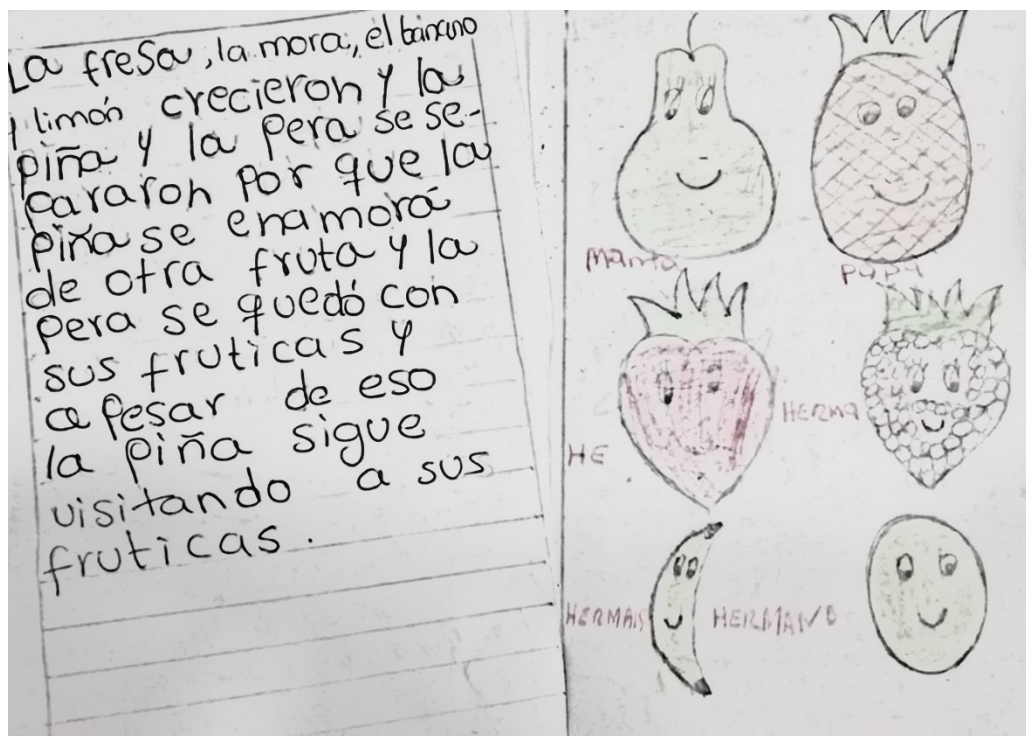 La fresa, la mora, el banano
y limón crecieron y la
piña y la pera se se-
pararon por que la
piña se enamoró
de otra fruta y la
pera se quedó con
sus fruticas y
a pesar de eso
la piña sigue
visitando a sus
fruticas.
Mamá
PAPÁ
HE
HERMA
HERMAN
HERMANO